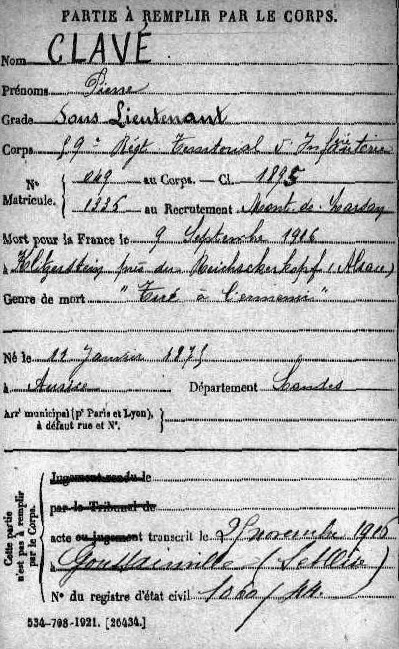 PARTIE À REMPLIR PAR LE CORPS.
Nom CLAVÉ
Prénoms Pierre
Grade Sous Lieutenant
Corps 59e Régt Territorial d'Infanterie
N° Matricule. 049 au Corps. — Cl. 1895
1335 au Recrutement Mont-de-Marsan
Mort pour la France le 9 Septembre 1916
à près du Reichackerkopf (Alsace)
Genre de mort "Tué à l'ennemi"
Né le Janvier 1875
à Département Landes
Arrt municipal (pr Paris et Lyon), à défaut rue et N°.
Cette partie n'est pas à remplir par le Corps.
Jugement rendu le
par le Tribunal de
acte ou jugement transcrit le novembre 1916
à Goussainville
N° du registre d'état civil
534-708-1921. [26434.]